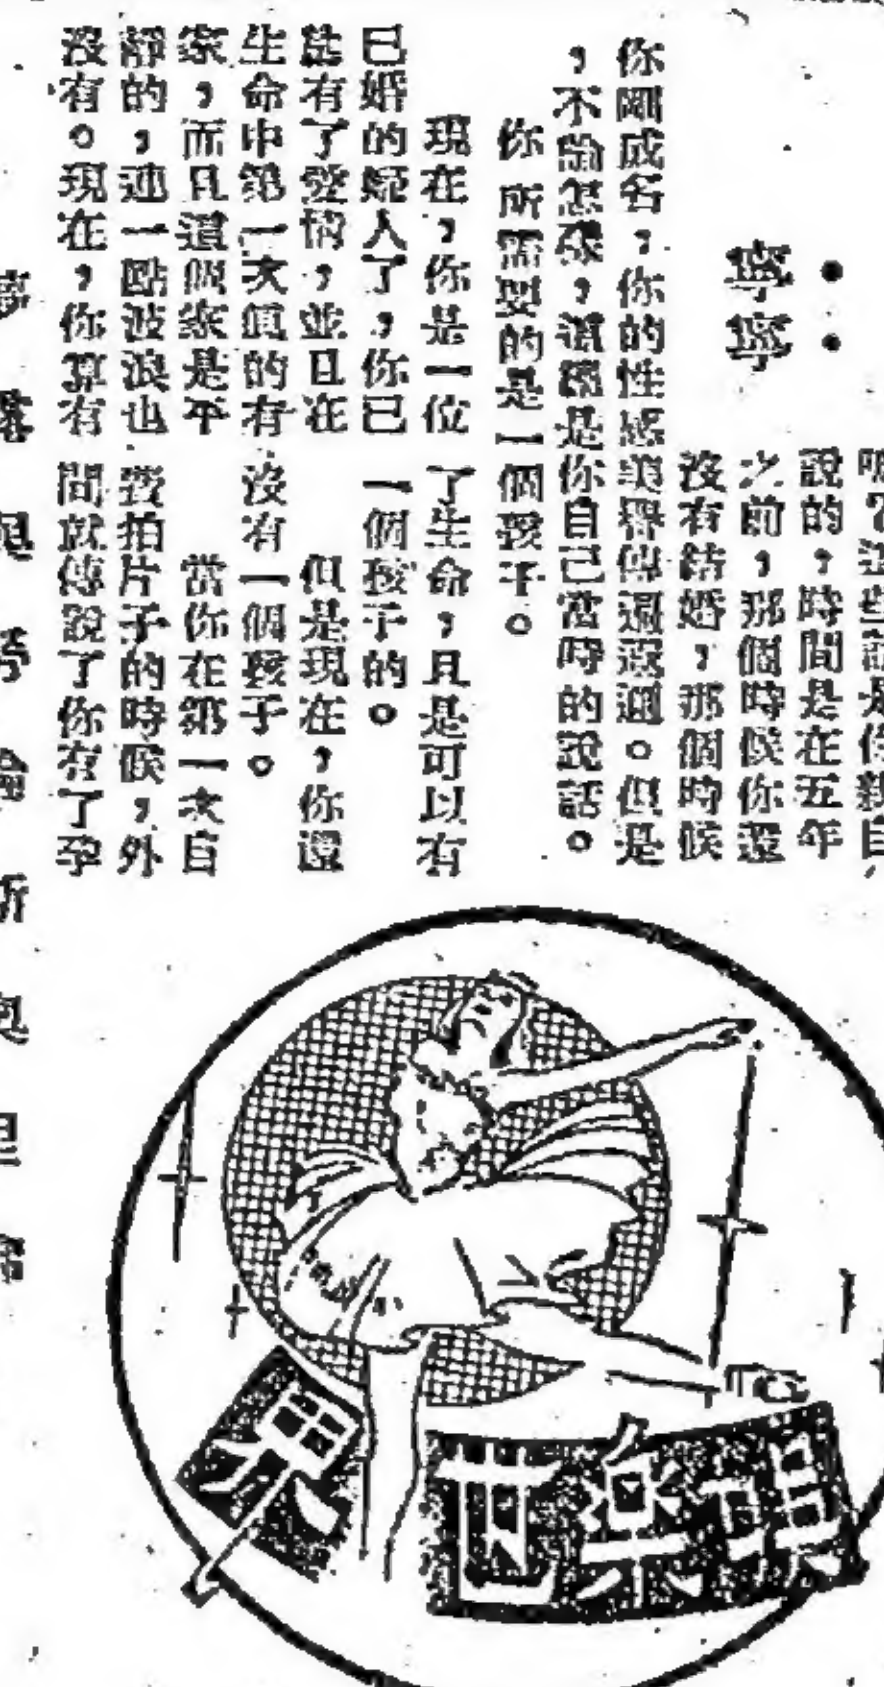 嗎?這些話是你親自
說的,時間是在五年
之前,那個時候你還
沒有結婚,那個時候
寧寧
你剛成名,你的性感美譽傳遍遐邇。但是
,不論怎樣,這總是你自己當時的說話。
你所需要的是一個孩子。
現在,你是一位
已婚的婦人了,你已
經有了愛情,並且在
生命中第一次真的有
家,而且這個家是平
靜的,連一點波浪也
沒有。現在,你算有
了生命,且是可以有
一個孩子的。
但是現在,你還
沒有一個孩子。
當你在第一次自
資拍片子的時候,外
間就傳說了你有了孕
夢露與勞倫斯奧里
娛樂世界